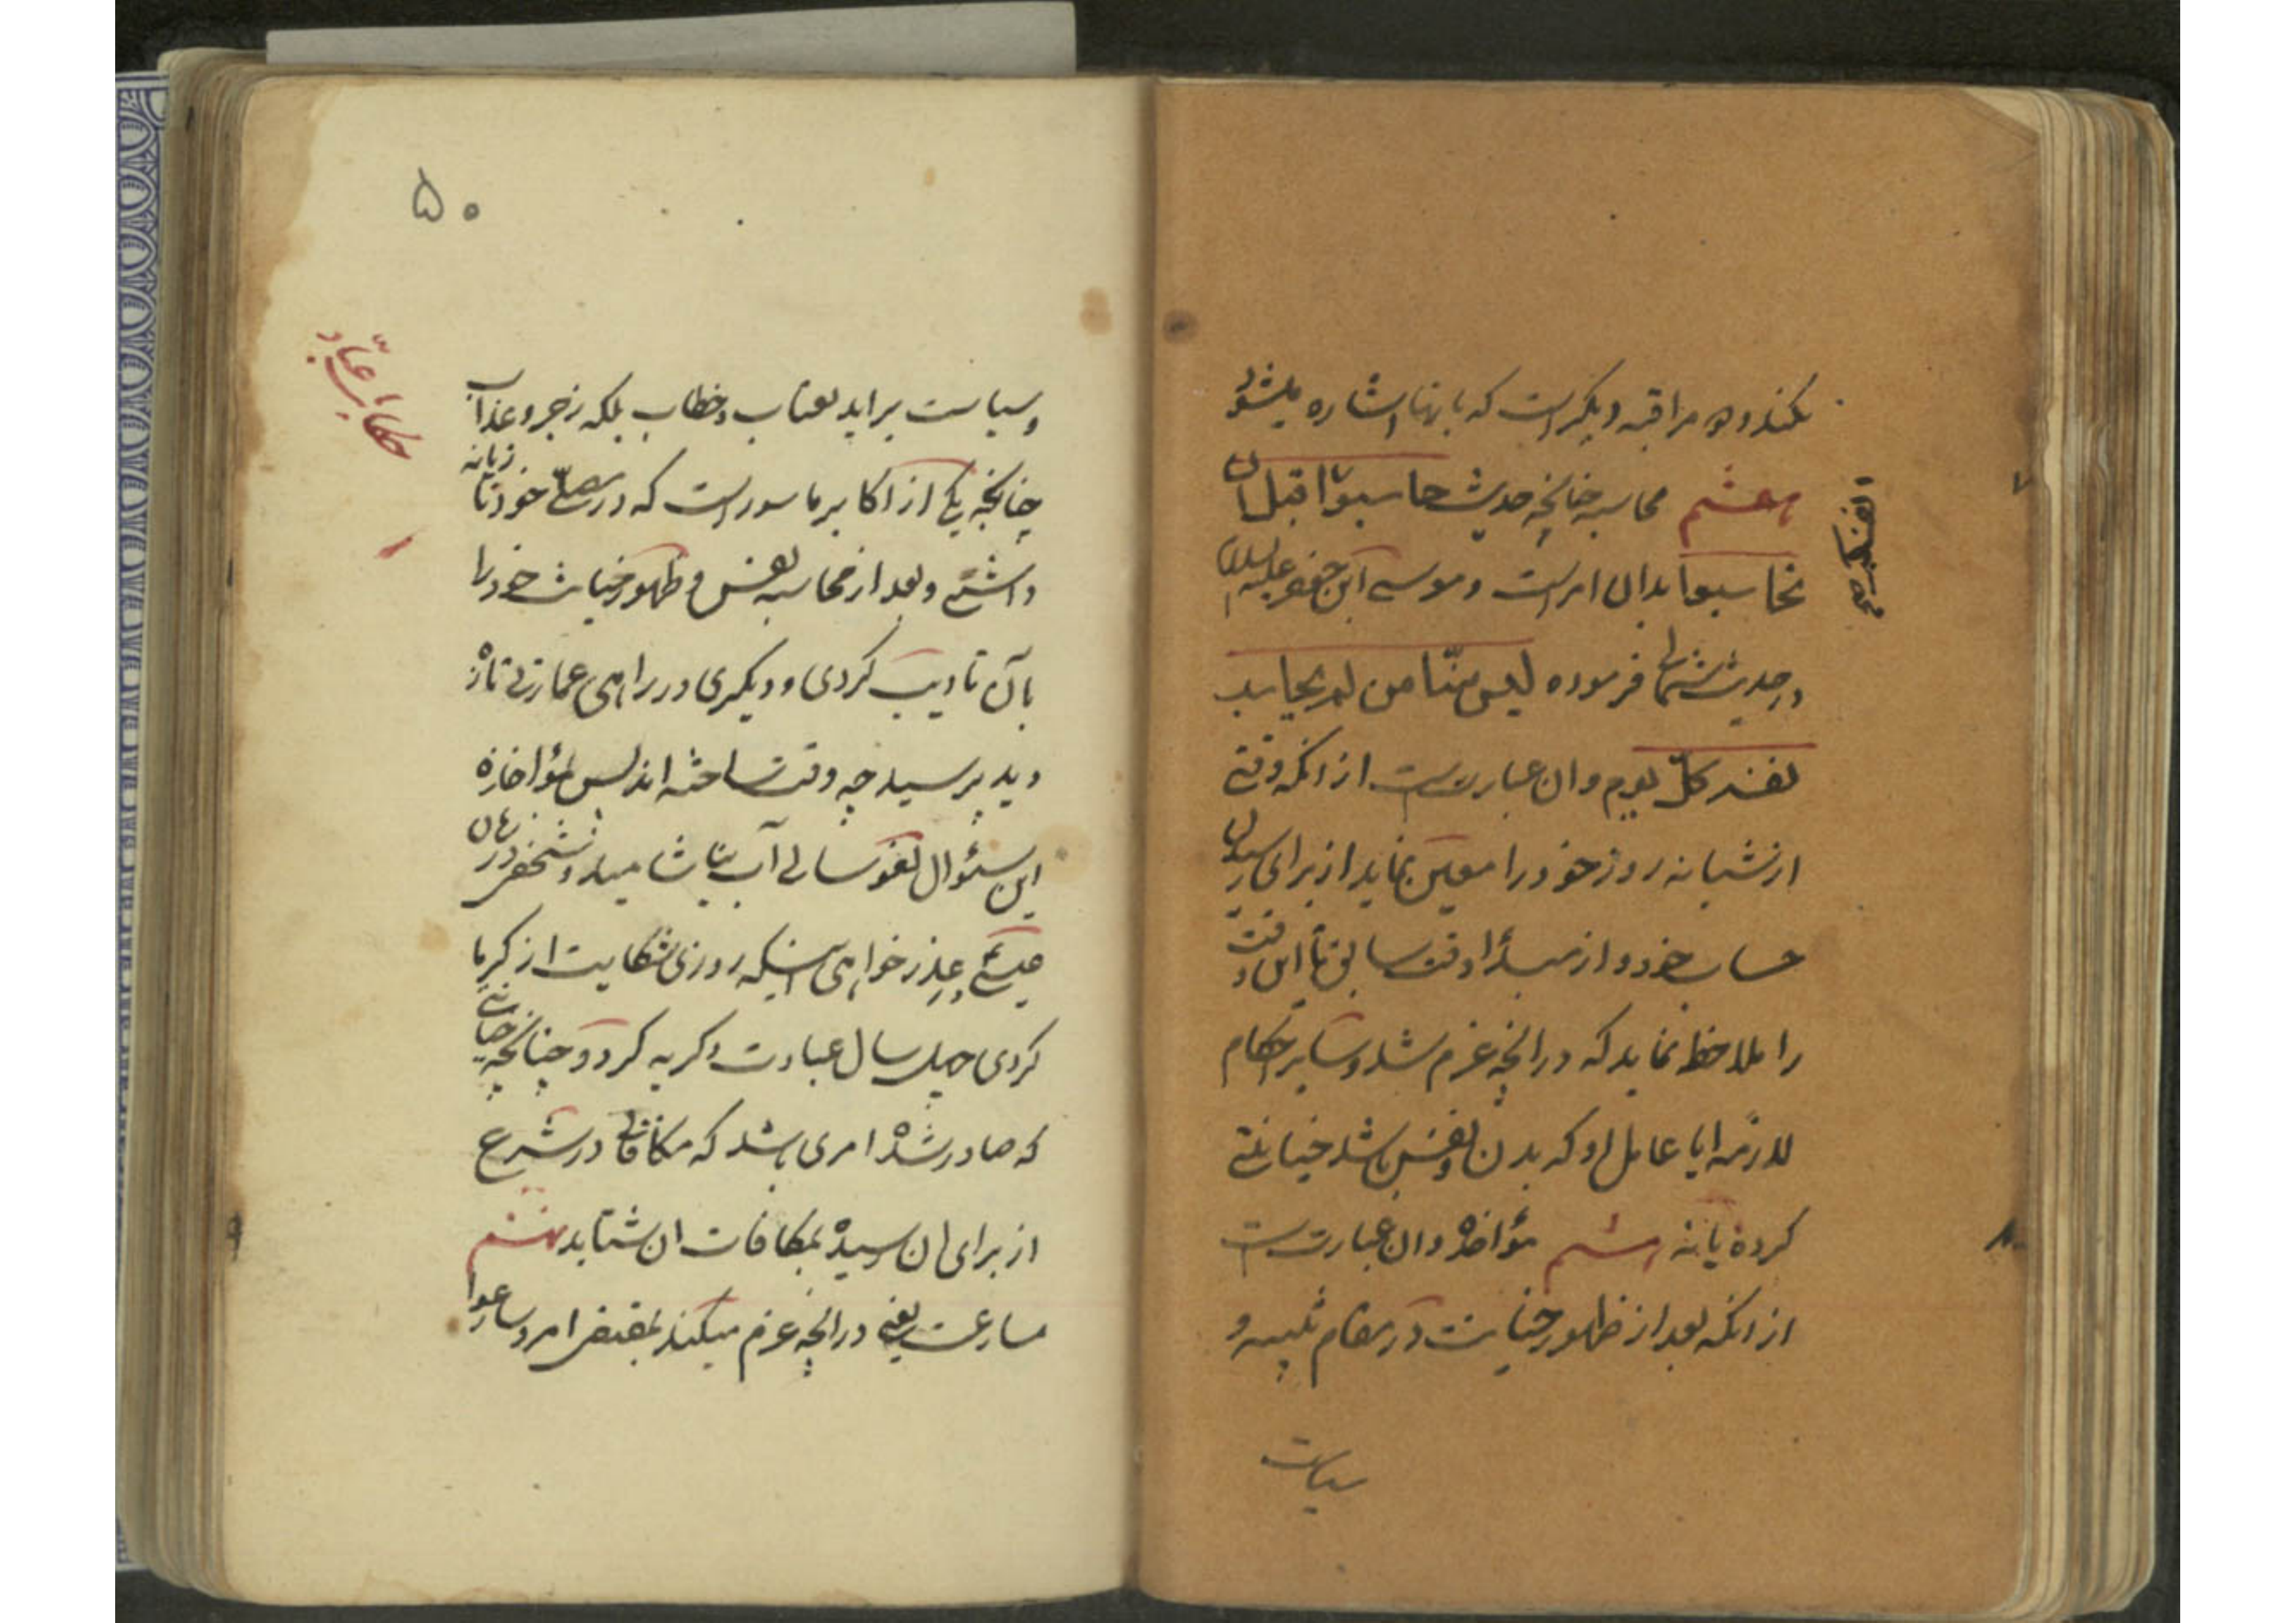 نکند و هو مراقبه دیگر است که بانها اشاره میشود
هفتم محاسبه چنانچه حدیث حاسبوا قبل ان
تحاسبوا بدان امر است و موسی ابن جعفر علیه السلام
در حدیث فرموده لیس منّا من لم یحاسب
نفسه کلّ یوم و ان عبارتست از انکه وقتی
از شبانه روز خود را معین نماید از برای رسیدن
حساب خود و از مبدأ وقت سابق تا این وقت
را ملاحظه نماید که در انچه عزم شد و سایر احکام
لازمه ایا عامل او که بدن و نفس باشد خیانتی
کرده یا نه هشتم مؤاخذه و ان عبارتست
از انکه بعد از ظهور خیانت در مقام تنبیه و
سیاست
۵۰
و سیاست براید بعتاب و خطاب بلکه زجر و عذاب
چنانچه یکی از اکابر ماسور است که در مصلّی خود تازیانه
داشتی و بعد از محاسبه نفس و ظهور خیانت خود را
بآن تادیب کردی و دیگری در راهی عمارتی تازه
دید پرسید چه وقت ساخته اند پس بمؤاخذه
این سئوال لغو سالی آب نیاشامید و شخصی در
عذر خواهی اینکه روزی شکایت از گرما
کردی چهل سال عبادت و گریه کرد و چنانچه خیانتی
که صادر شده امری باشد که مکافاتی در شرع
از برای ان رسیده بمکافات ان شتابد نهم
مسارعت یعنی در انچه عزم میکند بمقتضی امر و سارعوا